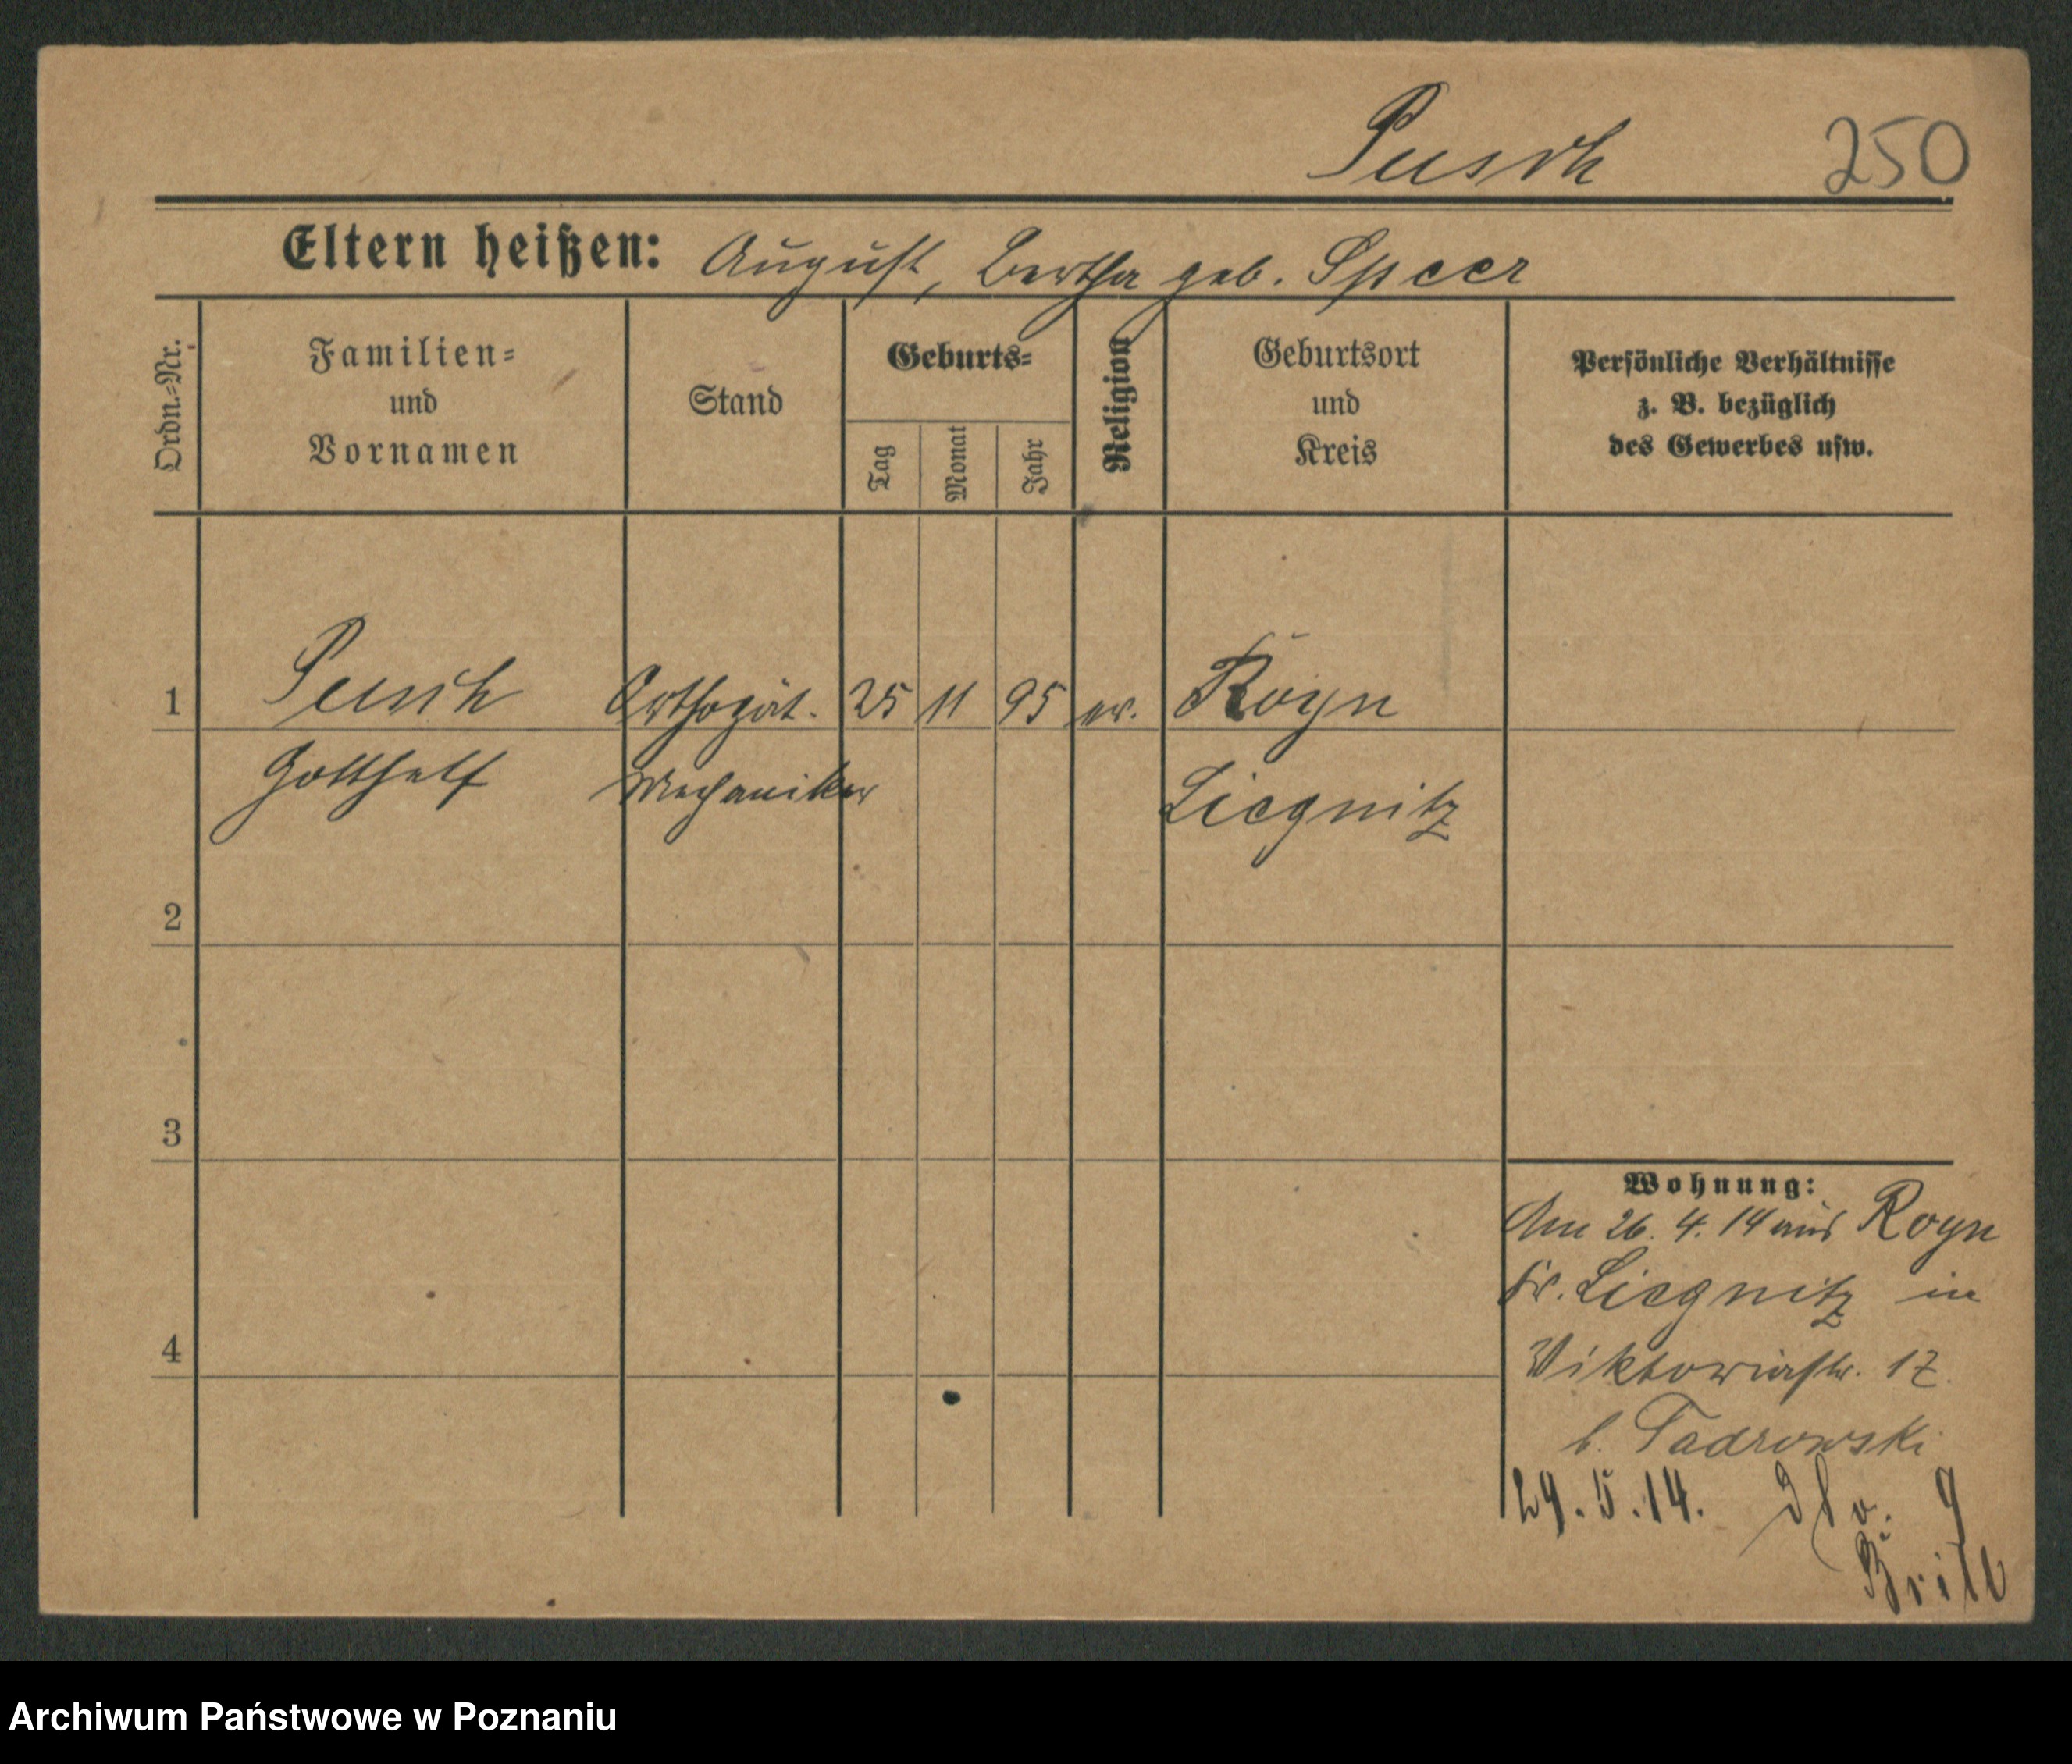 Pusch 250
Eltern heißen: August, Bertha geb. Speer
Ordn.=Nr.
Familien=
und
Vornamen
Stand
Geburts=
Tag
Monat
Jahr
Religion
Geburtsort
und
Kreis
Persönliche Verhältnisse
z. B. bezüglich
des Gewerbes usw.
1 Pusch Orthopät. 25 11 95 ev. Royn
Gotthelf Mechaniker Liegnitz
2
3
4
Wohnung:
Am 26. 4. 14 aus Royn
Kr. Liegnitz in
Viktoriastr. 17.
b. Tadrowski
29. 5. 14.
Brill
Archiwum Państwowe w Poznaniu